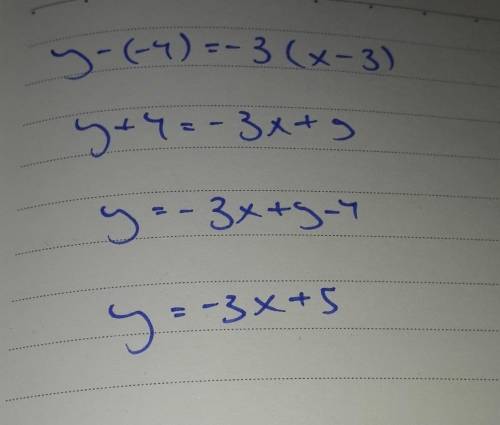 y-(-4)=-3(x-3)
y+4=-3x+9
y=-3x+9-4
y=-3x+5